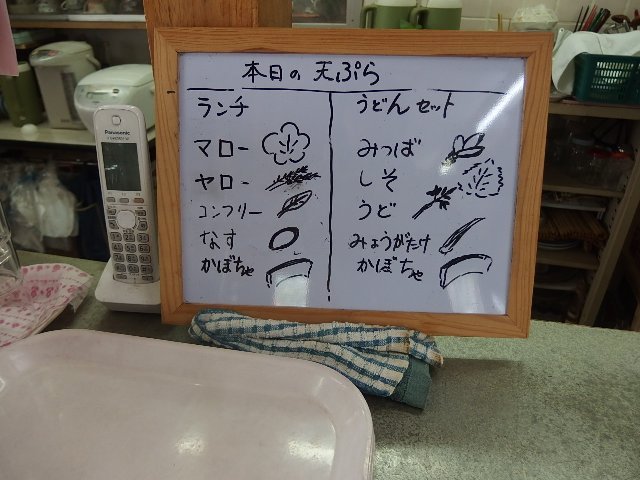 本日の天ぷら
ランチ
マロー
ヤロー
コンフリー
なす
かぼちゃ
うどんセット
みつば
しそ
うど
みょうがたけ
かぼちゃ
Panasonic